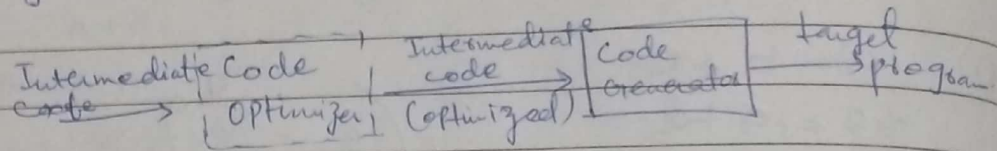 Intermediate code
Code Optimizer
Intermediate code (optimized)
Code Generator
target program